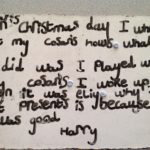 this christmas day I wh
t my cosans hows. what
did was I Played w
cosans I woke up
n it was eliy why
t presents is because
was good
Harry